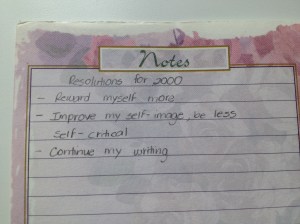 Notes
Resolutions for 2000
- Reward myself more
- Improve my self-image, be less
self-critical
- Continue my writing